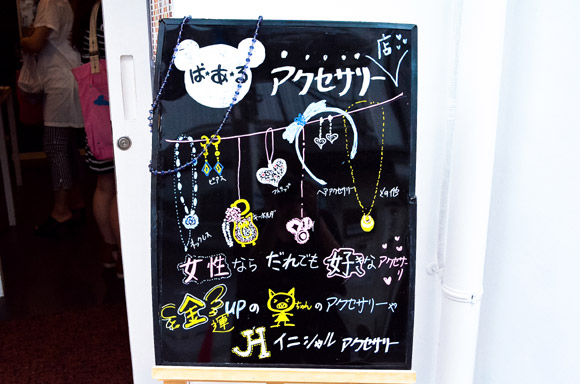 ぱ・あ・る
アクセサリー店
ピアス
ネックレス
キーホルダ
ヘアアクセサリー
その他
女性なら だれでも 好きな アクセサリ
金運upの ちゃんのアクセサリーや
JH イニシャル アクセサリー